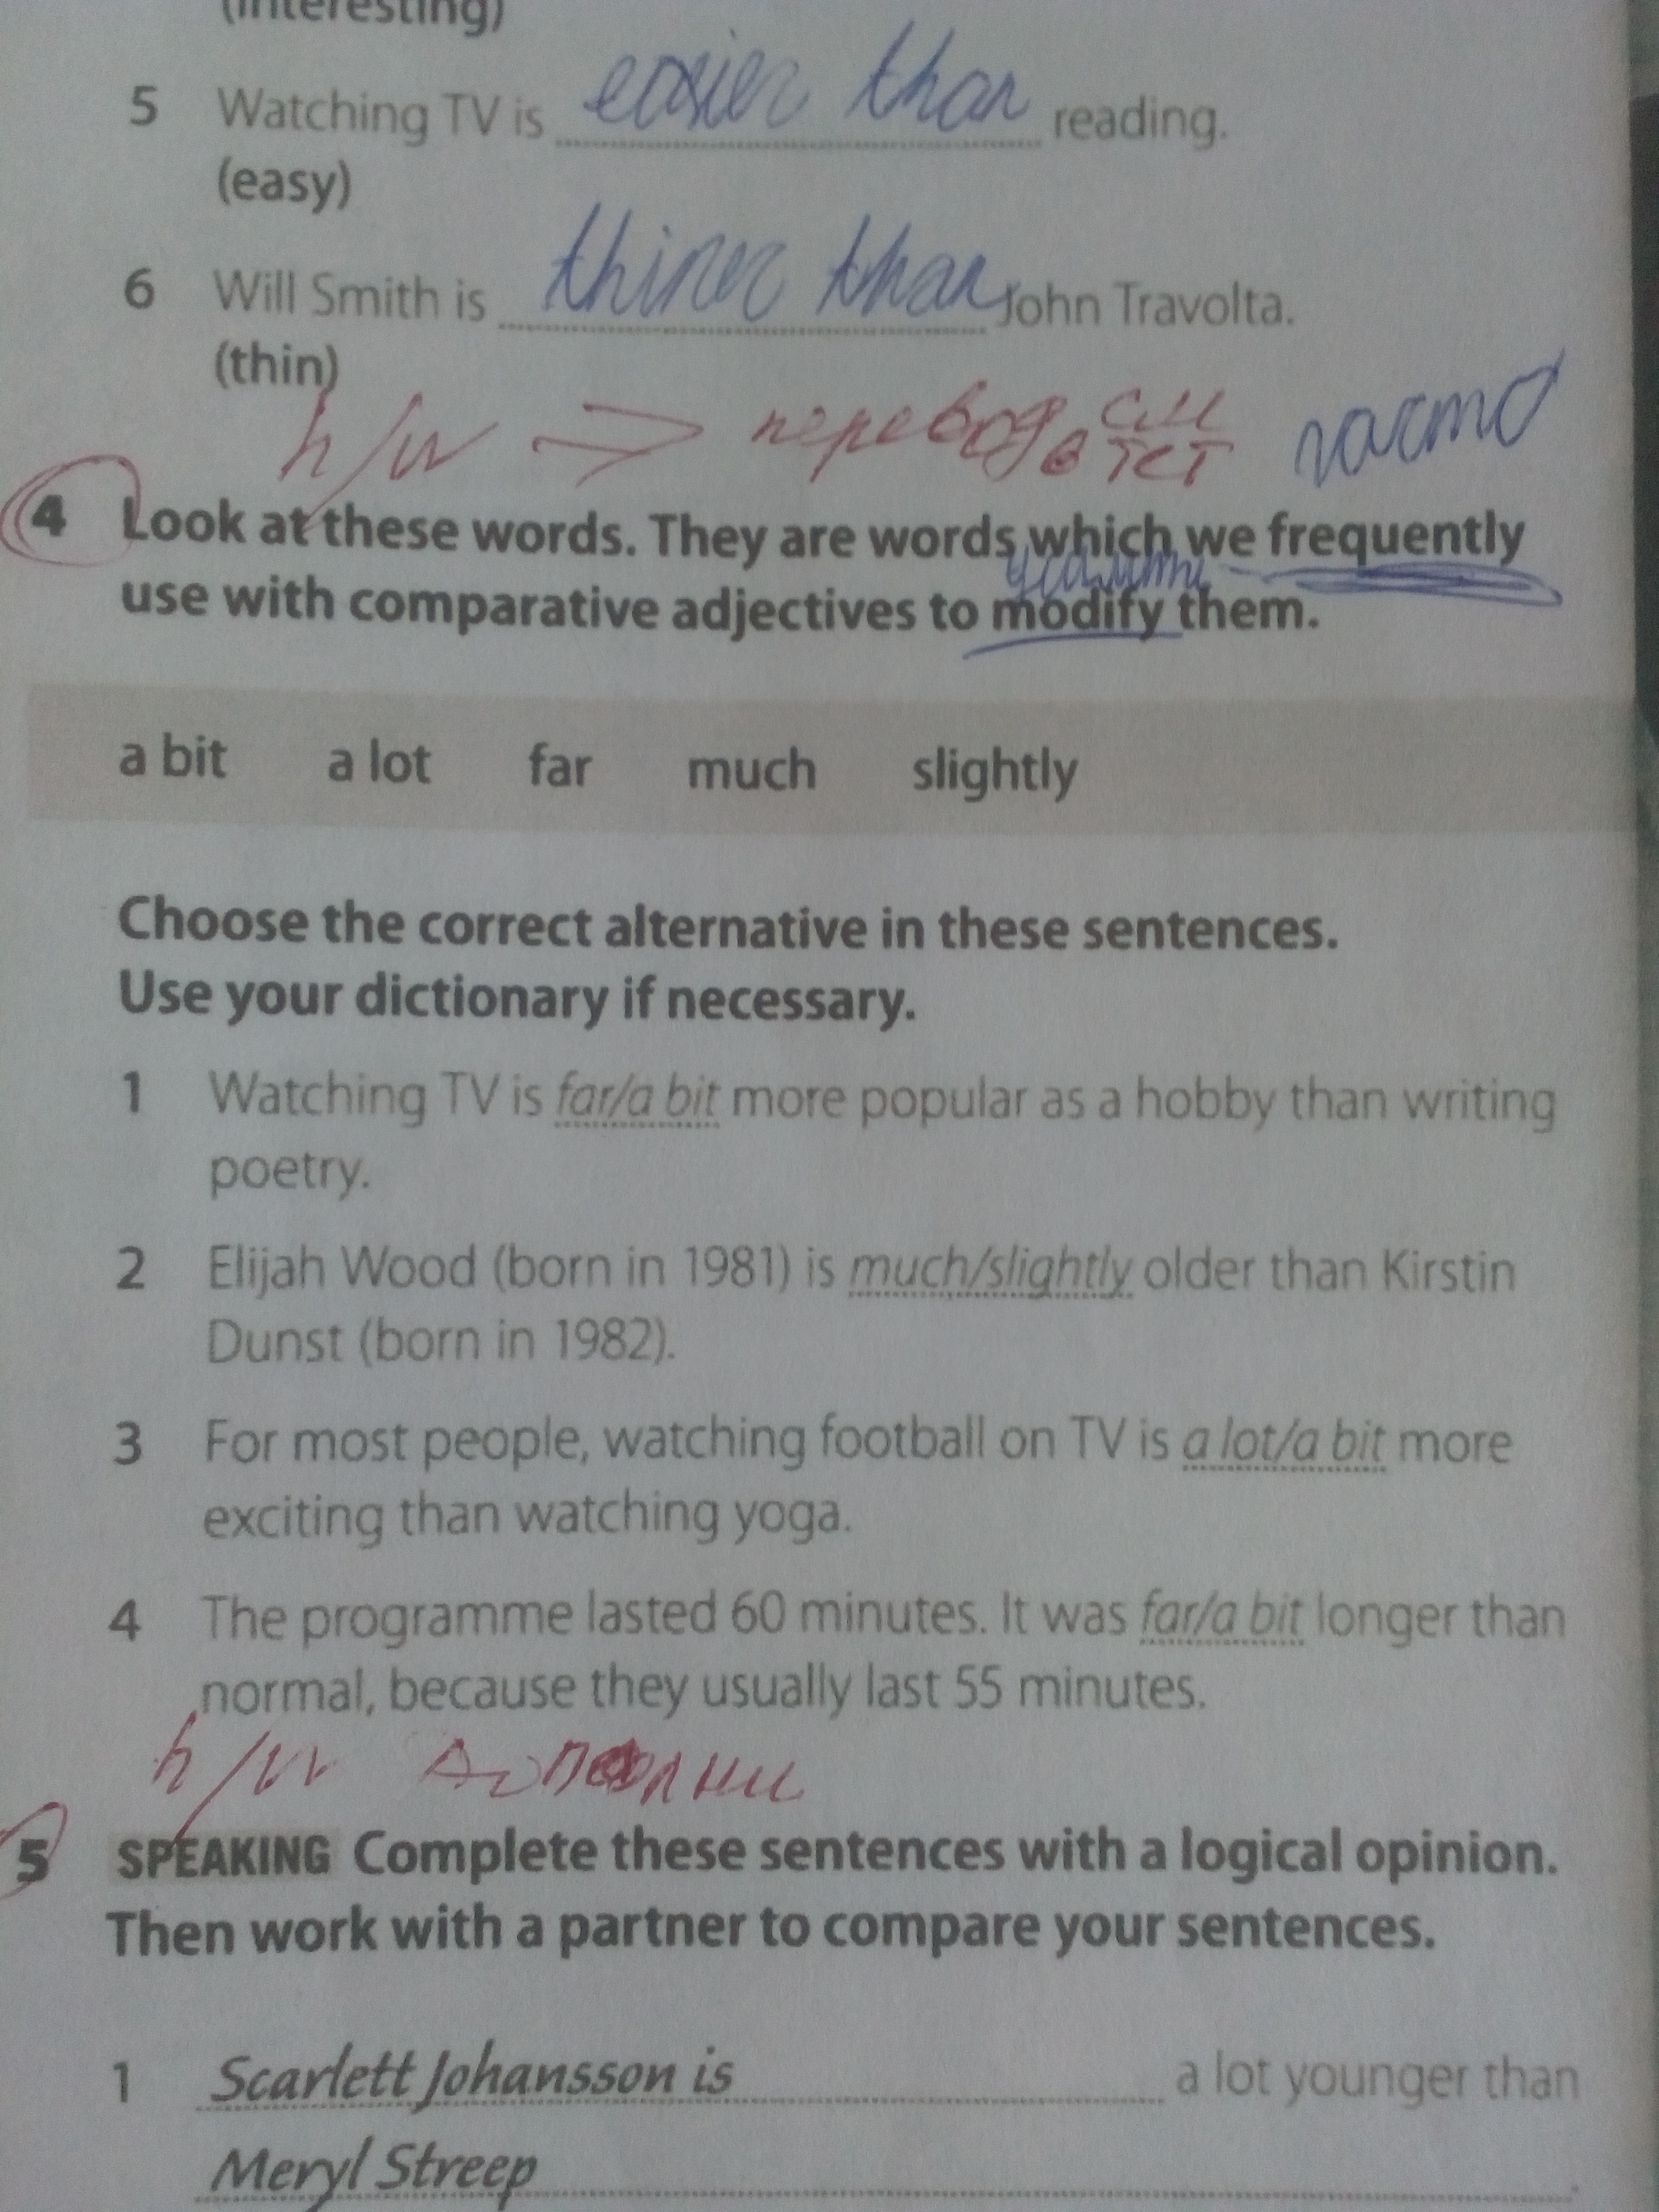 (interesting)
5 Watching TV is easier than reading.
(easy)
6 Will Smith is thiner than John Travolta.
(thin)
h/w => перевод в см тст часто
4 Look at these words. They are words which we frequently
use with comparative adjectives to modify them.
a bit a lot far much slightly
Choose the correct alternative in these sentences.
Use your dictionary if necessary.
1 Watching TV is far/a bit more popular as a hobby than writing
poetry.
2 Elijah Wood (born in 1981) is much/slightly older than Kirstin
Dunst (born in 1982).
3 For most people, watching football on TV is a lot/a bit more
exciting than watching yoga.
4 The programme lasted 60 minutes. It was far/a bit longer than
normal, because they usually last 55 minutes.
h/w
5 SPEAKING Complete these sentences with a logical opinion.
Then work with a partner to compare your sentences.
1 Scarlett Johansson is a lot younger than
Meryl Streep .